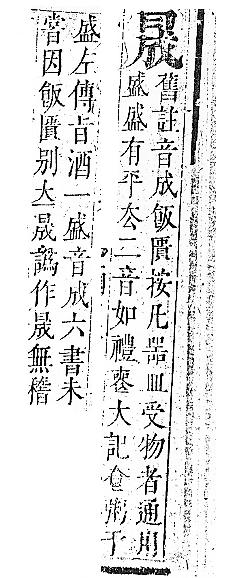 晟
舊註音成飯匱按凡器皿受物者通用
盛盛有平去二音如禮喪大記食粥于
盛左傳旨酒一盛音成六書未
嘗因飯匱别大晟譌作晟無稽